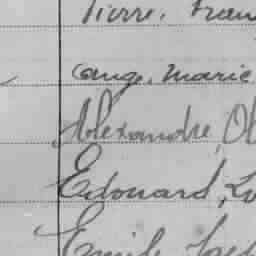 Pierre, Fran
Ange, Marie
Alexandre, Ol
Edouard, Lo
Emile